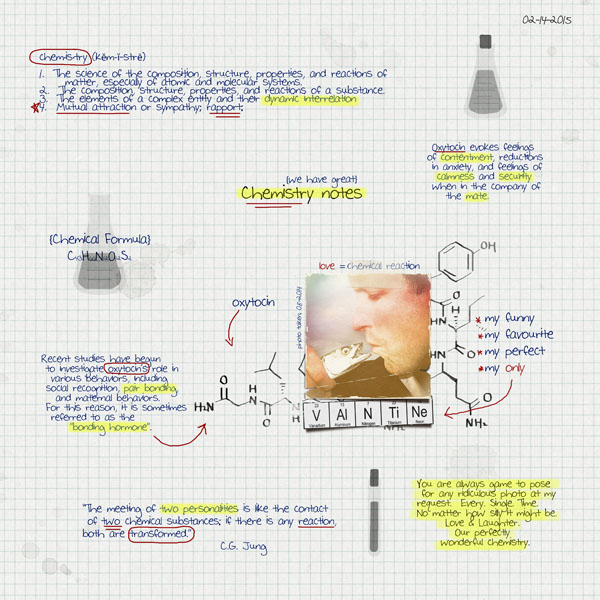 02-14-2015
Chemistry (kĕm-ĭ-strē)
1. The science of the composition, structure, properties, and reactions of
matter, especially of atomic and molecular systems.
2. The composition, structure, properties, and reactions of a substance.
3. The elements of a complex entity and their dynamic interrelation
4. Mutual attraction or sympathy; rapport:
Oxytocin evokes feelings
of contentment, reductions
in anxiety, and feelings of
calmness and security
when in the company of
the mate.
(we have great)
Chemistry notes
{Chemical Formula}
love = chemical reaction
OH
oxytocin
photo taken 08-2014
* my funny
* my favourite
* my perfect
* my only
Recent studies have begun
to investigate oxytocin's role in
various behaviors, including
social recognition, pair bonding,
and maternal behaviors.
For this reason, it is sometimes
referred to as the
"bonding hormone".
H₂N
O
NH₂
V Al N Ti Ne
Vanadium Aluminum Nitrogen Titanium Neon
"The meeting of two personalities is like the contact
of two chemical substances; if there is any reaction,
both are transformed."
C.G. Jung
You are always game to pose
for any ridiculous photo at my
request. Every. Single. Time.
No matter how silly it might be.
Love & Laughter.
Our perfectly
wonderful chemistry.